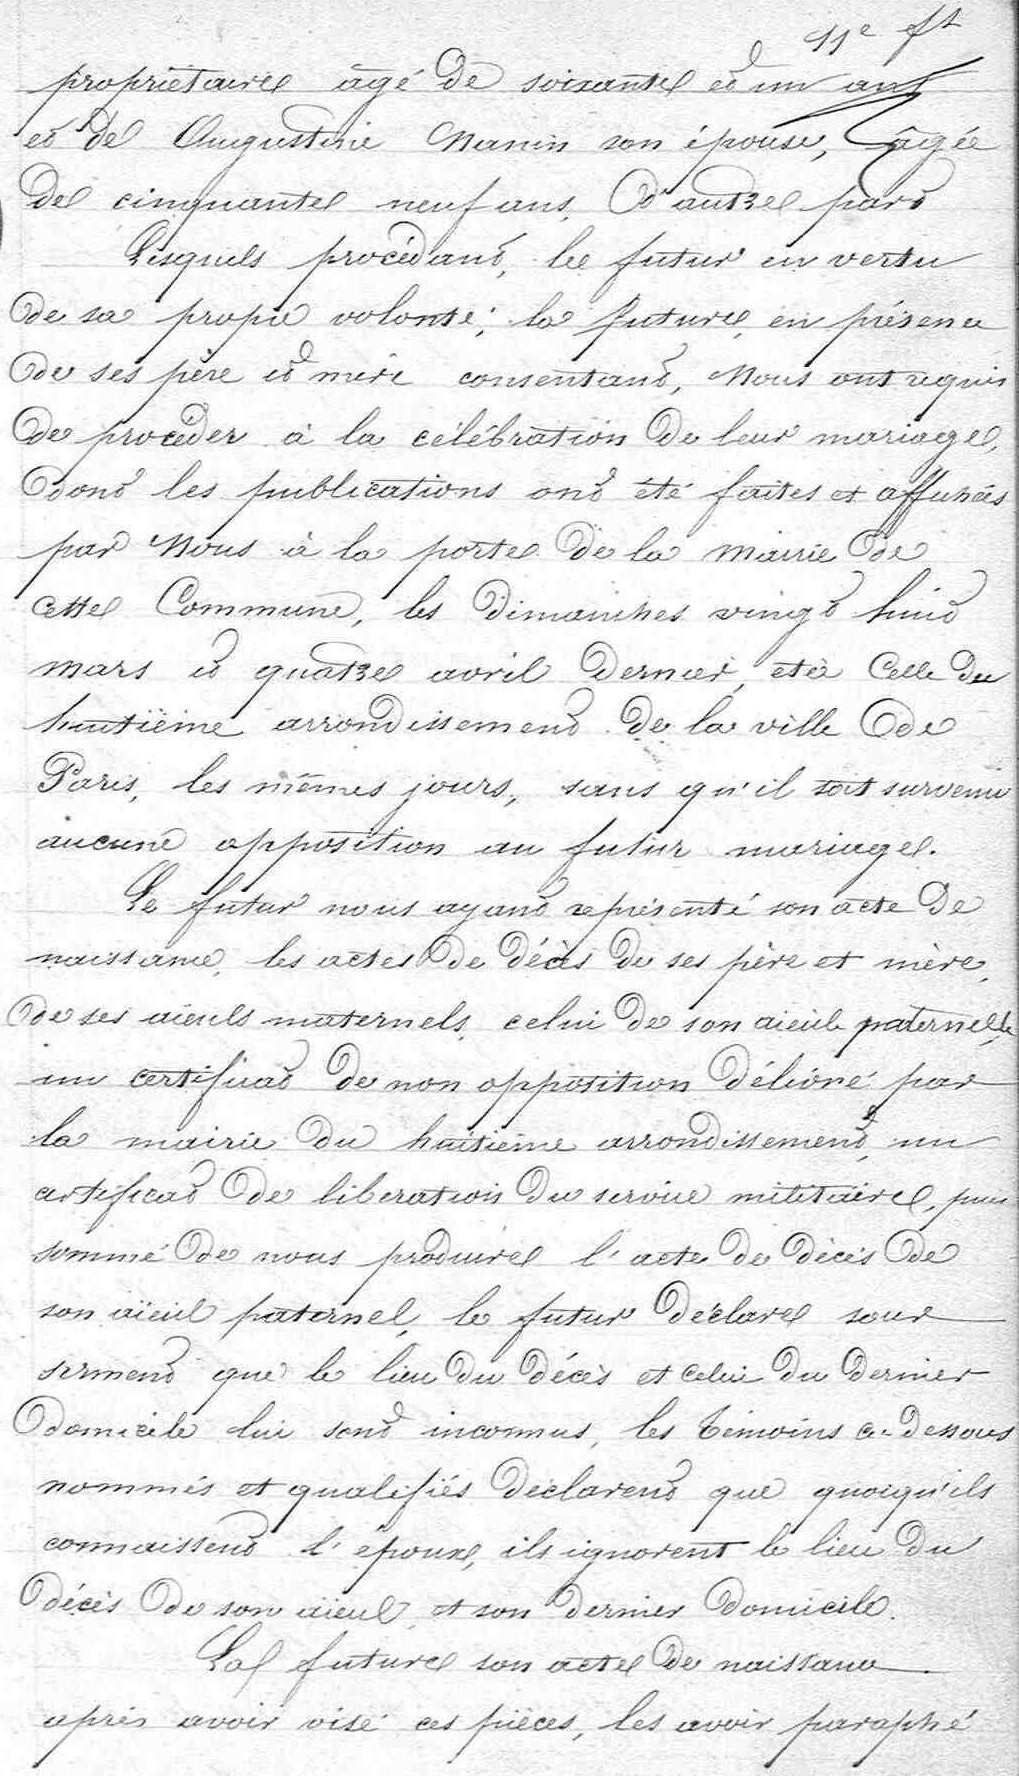 11e ft
propriétaire âgé de soixante et un ans
et de Augustine Manin son épouse, âgée
de cinquante neuf ans. D'autre part
Lesquels procédant, le futur en vertu
de sa propre volonté; la future, en présence
de ses père et mère consentant, Nous ont requis
de procéder à la célébration de leur mariage,
dont les publications ont été faites et affichées
par Nous à la porte de la Mairie de
cette Commune, les Dimanches vingt huit
mars et quatre avril dernier, et à Celle du
huitième arrondissement de la ville de
Paris, les mêmes jours, sans qu'il soit survenu
aucune opposition au futur mariage.
Le futur nous ayant représenté son acte de
naissance, les actes de décès de ses père et mère,
de ses aïeuls maternels, celui de son aieule paternelle,
un certificat de non opposition délivré par
la mairie du huitième arrondissement, un
certificat de liberation du service militaire, puis
sommé de nous produire l'acte de décès de
son aïeul paternel, le futur déclare sour
serment que le lieu du décès et celui du dernier
domicile lui sont inconnus, les témoins ci-dessous
nommés et qualifiés déclarent que quoiqu'ils
connaissent l'époux, ils ignorent le lieu du
décès de son aïeul, et son dernier domicile.
La future son acte de naissance
après avoir visé ces pièces, les avoir paraphé